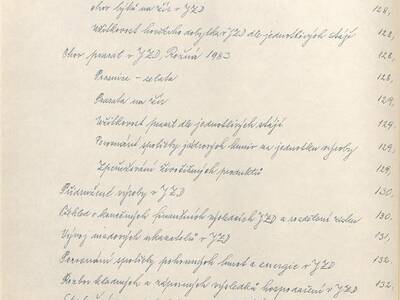 chov býků na žír v JZD 128,
Užitkovost hovězího dobytka v JZD dle jednotlivých stájí 128,
Chov prasat v JZD, Rožná 1983 128,
Prasnice - selata 128,
Prasata na žír 129,
Užitkovost prasat dle jednotlivých stájí 129,
Porovnání spotřeby jadrných krmiv na jednotku výroby 129,
Zpeněžování živočišných produktů 129,
Přidružené výroby v JZD 130,
Přehled o konečných finančních výsledcích JZD a rozdělení 130,
Vývoj mzdových ukazatelů v JZD 131,
Porovnání spotřeby pohonných hmot a energie v JZD 132,
Rozbor kladných a záporných výsledků hospodaření v JZD 132,